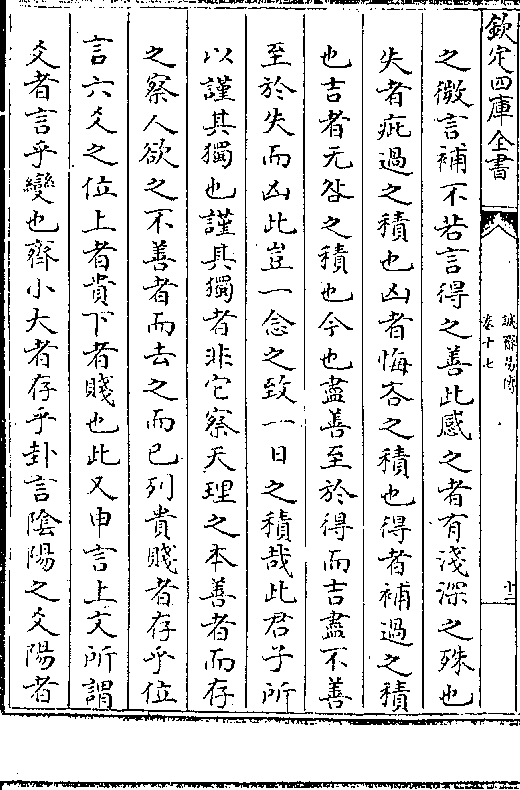 欽定四庫全書
誠齋易傳
卷十七
十二
之微言補不若言得之善此感之者有淺深之殊也
失者疵過之積也凶者悔吝之積也得者補過之積
也吉者无咎之積也今也盡善至於得而吉盡不善
至於失而凶此豈一念之致一日之積哉此君子所
以謹其獨也謹其獨者非它察天理之本善者而存
之察人欲之不善者而去之而已列貴賤者存乎位
言六爻之位上者貴下者賤也此又申言上文所謂
爻者言乎變也齊小大者存乎卦言陰陽之爻陽者